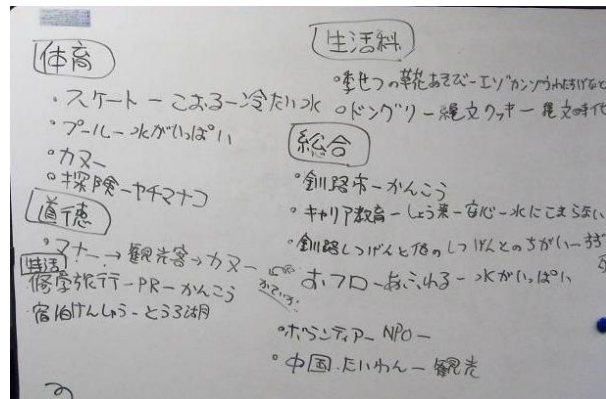 体育
・スケート ー こおるー冷たい水
・プールー水がいっぱい
・カヌー
・探険ーヤチマナコ
道徳
・マナー → 観光客 → カヌー
生活
修学旅行ーPRーかんこう
宿泊けんしゅうーとうろ湖
生活科
・季せつの草花あそびーエゾカンゾウ
・ドングリー縄文クッキー 縄文時代
総合
・釧路市ーかんこう
・キャリア教育ーしょう来ー安心ー水にこまらない
・釧路しつげんと他のしつげんとのちがいー
おフローあふれるー水がいっぱい
・ボランティアーNPOー
・中国.たいわんー観光